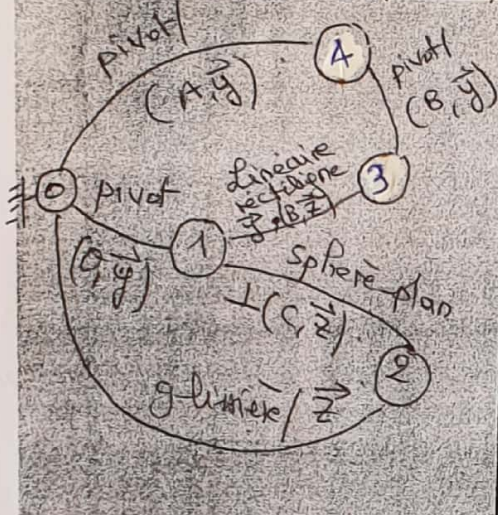 pivot
(A, y⃗)
4
pivot
(B, y⃗)
0
pivot
(O, y⃗)
1
Linéaire
rectiligne
y⃗, (B, z⃗)
3
sphère-plan
⊥(C, z⃗)
2
glissière / z⃗